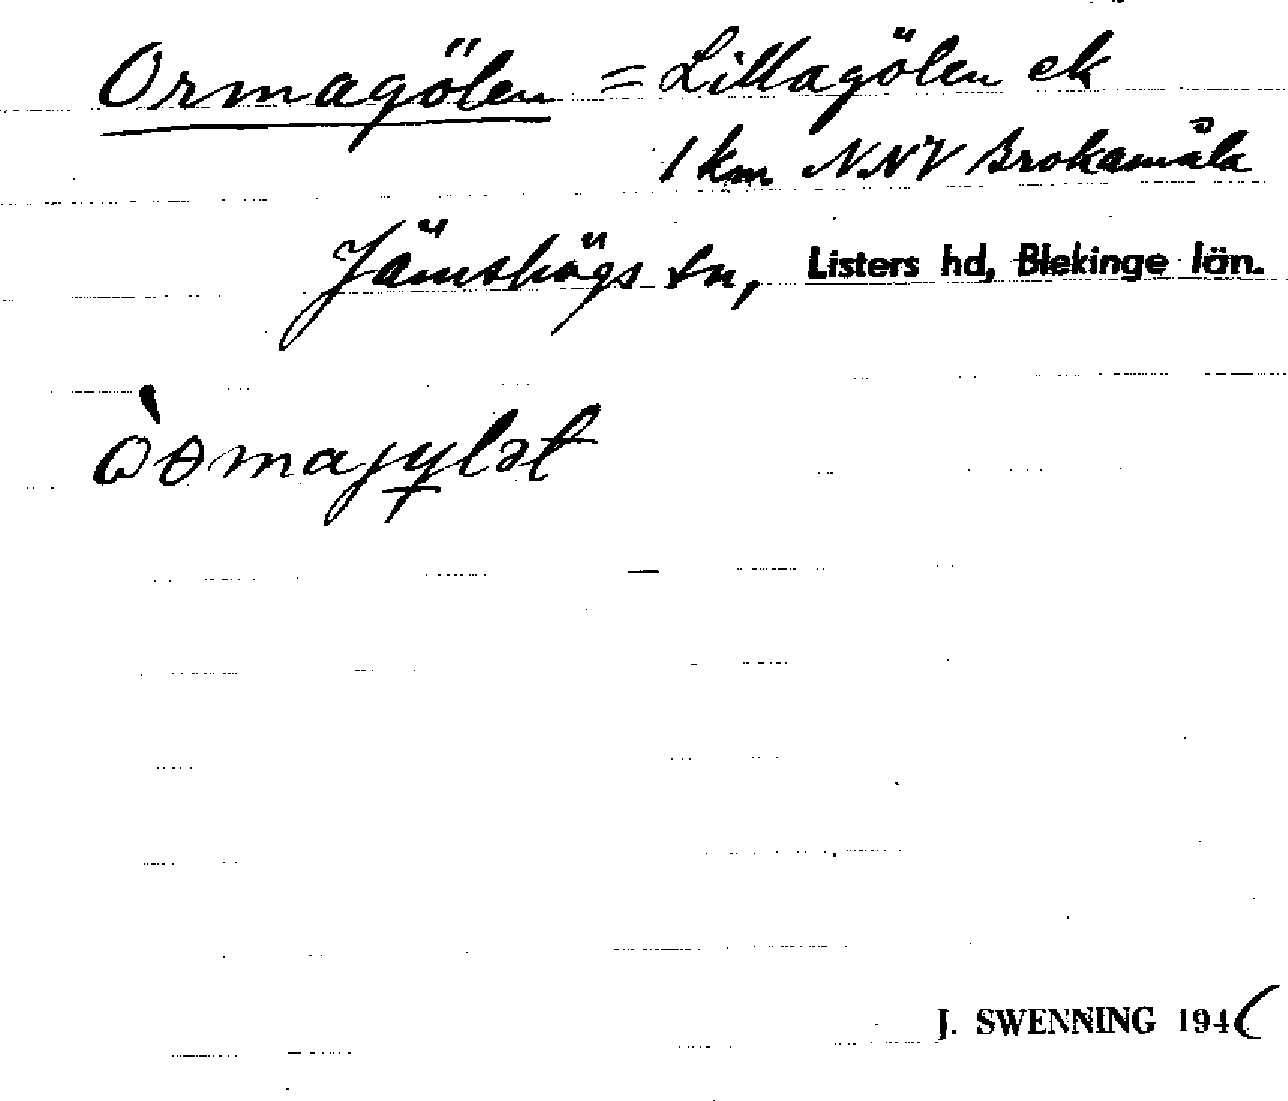 Ormagölen = Lillagölen ek
1 km NNV Brokamåla
Jämshögs sn, Listers hd, Blekinge län.
J. SWENNING 194